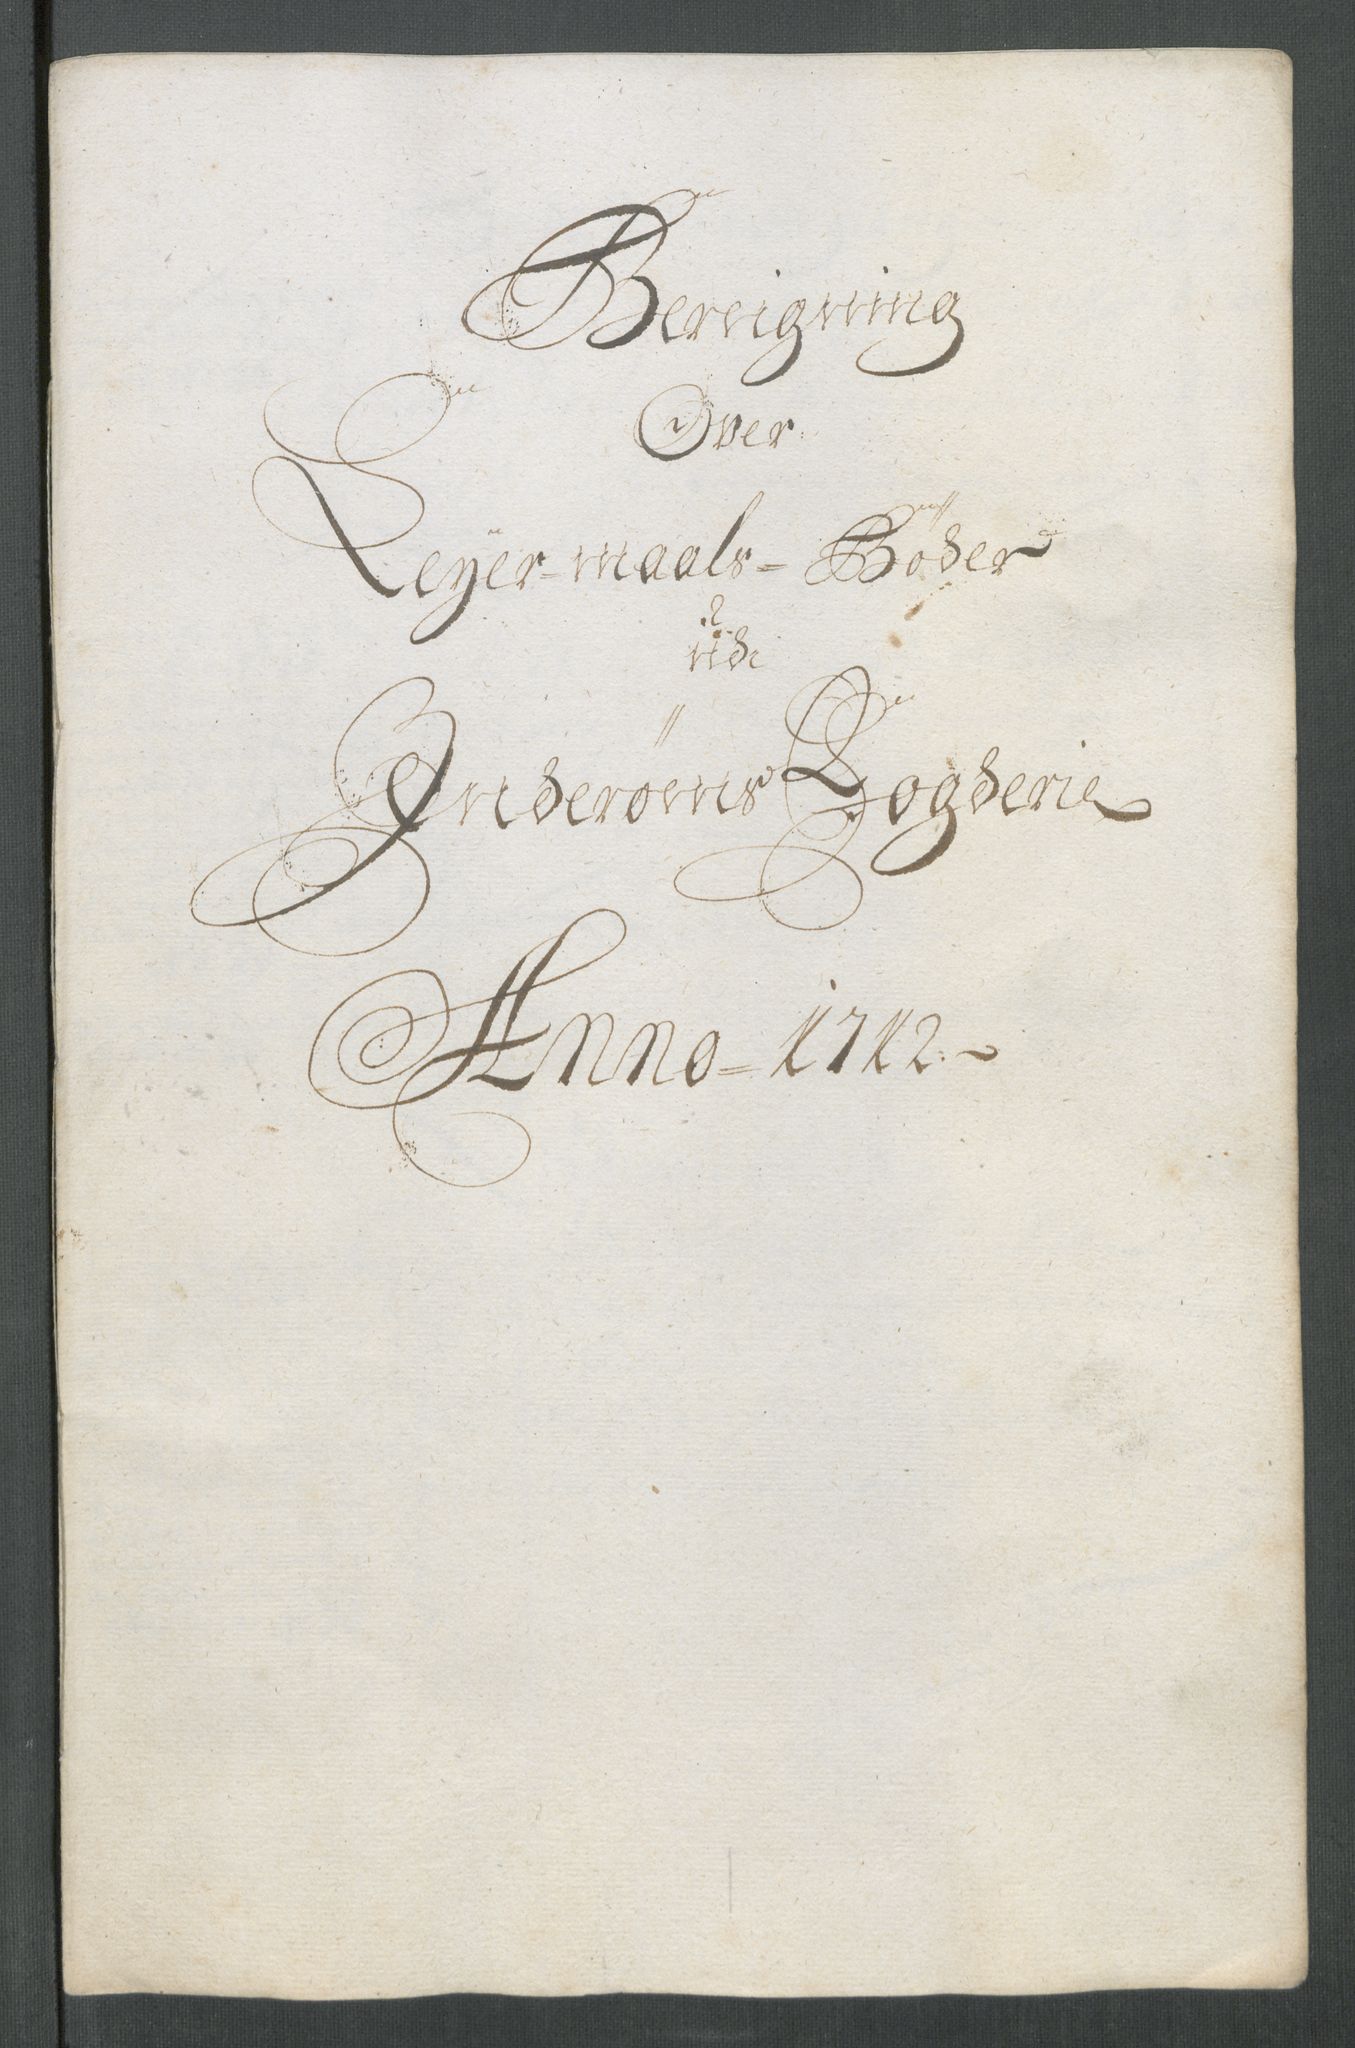 Bereigning
Over
Leÿer-maals-Böder
udi
Inderøens Fogderie
Anno-1712.